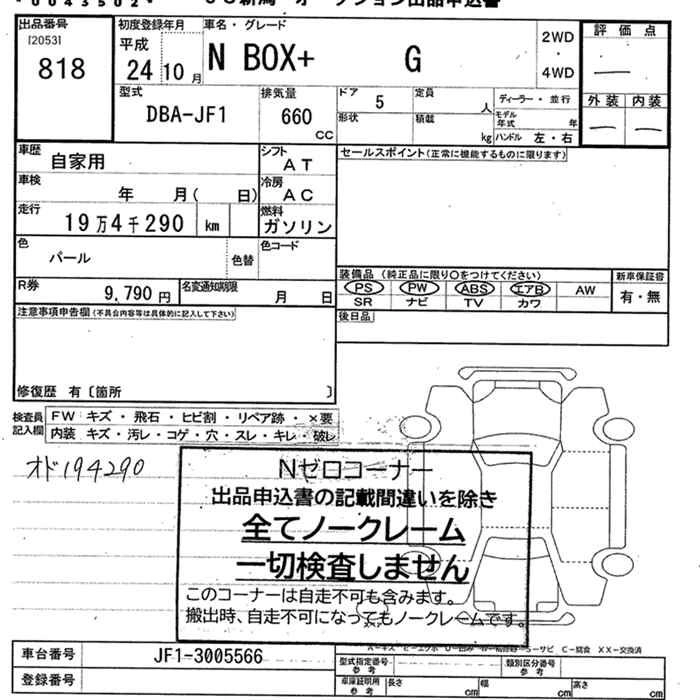 *0043502*
出品番号
[2053]
818
初度登録年月
平成
24 10 月
車名・グレード
N BOX+ G
2WD
・
4WD
評価点
―
外装 内装
― ―
型式
DBA-JF1
排気量
660
CC
ドア 5
定員 人
ディーラー・並行
形状
積載 kg
モデル年式 年
ハンドル 左・右
車歴
自家用
シフト
AT
セールスポイント(正常に機能するものに限ります)
車検
年 月( 日)
冷房
AC
走行
19万4千290 km
燃料
ガソリン
色
パール
色替
色コード
装備品(純正品に限り○をつけてください)
新車保証書
PS PW ABS エアB AW
有・無
SR ナビ TV カワ
R券
9,790 円
名変通知期限
月 日
後日品
注意事項申告欄(不具合内容等は具体的に記入して下さい)
修復歴 有〔箇所 〕
検査員記入欄
FW キズ・飛石・ヒビ割・リペア跡・×要
内装 キズ・汚レ・コゲ・穴・スレ・キレ・破レ
オド194290
Nゼロコーナー
出品申込書の記載間違いを除き
全てノークレーム
一切検査しません
このコーナーは自走不可も含みます。
搬出時、自走不可になってもノークレームです。
S-サビ C-腐食 XX-交換済
車台番号
JF1-3005566
型式指定番号
参考
類別区分番号
参考
登録番号
車庫証明用
参考
長さ cm
幅 cm
高さ cm